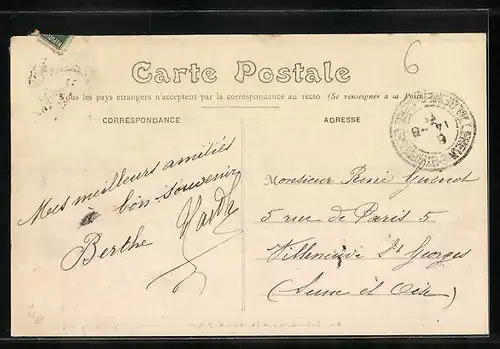 6
Carte Postale
Tous les pays étrangers n'acceptent par la correspondance au recto (Se renseigner à la Poste)
CORRESPONDANCE
ADRESSE
Mes meilleurs amitiés
à bon souvenir
Berthe
Monsieur René Guénot
5 rue de Paris 5
Villeneuve St Georges
(Seine et Oise)